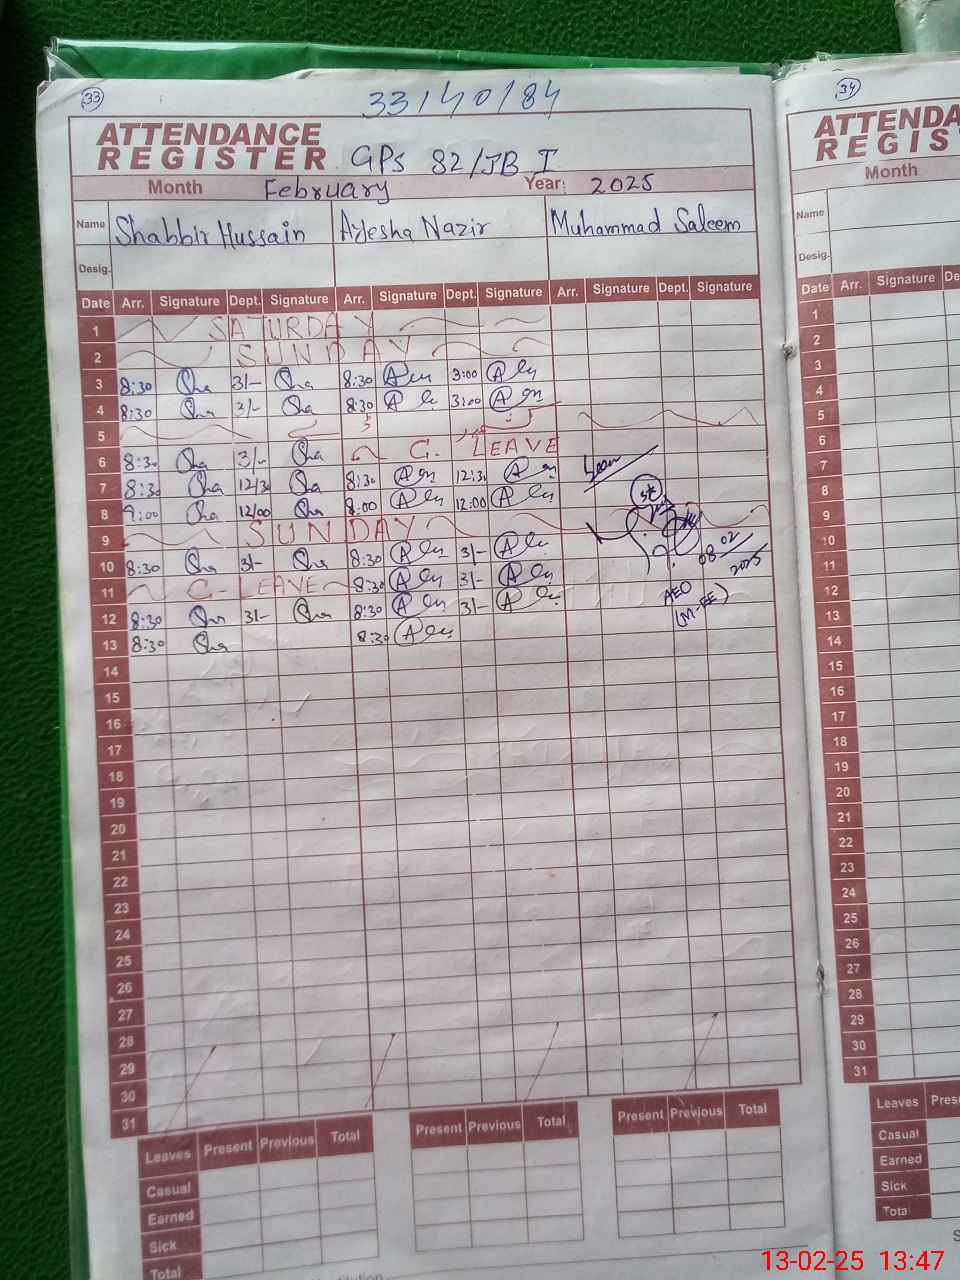 33
33/40/84
34
ATTENDANCE
REGISTER GPS 82/JB I
Month February Year: 2025
Name Shabbir Hussain Ayesha Nazir Muhammad Saleem
Desig.
Date Arr. Signature Dept. Signature Arr. Signature Dept. Signature Arr. Signature Dept. Signature
1 SATURDAY
2 SUNDAY
3 8:30 Sha 3/- Sha 8:30 3:00
4 8:30 Sha 3/- Sha 8:30 3:00
5
6 8:30 Sha 3/- Sha C. LEAVE
7 8:30 Sha 12/30 Sha 8:30 12:30
8 9:00 Sha 12/00 Sha 8:00 12:00
9 SUNDAY
10 8:30 Sha 3/- Sha 8:30 3/-
11 C. LEAVE 8:30 3/-
12 8:30 Sha 3/- Sha 8:30 3/-
13 8:30 Sha 8:30
08/02/2025
AEO
(M-EE)
14
15
16
17
18
19
20
21
22
23
24
25
26
27
28
29
30
31
Leaves Present Previous Total Present Previous Total Present Previous Total
Casual
Earned
Sick
Total
ATTENDA
REGIS
Month
Name
Desig.
Date Arr. Signature De
1
2
3
4
5
6
7
8
9
10
11
12
13
14
15
16
17
18
19
20
21
22
23
24
25
26
27
28
29
30
31
Leaves Prese
Casual
Earned
Sick
Total
13-02-25 13:47